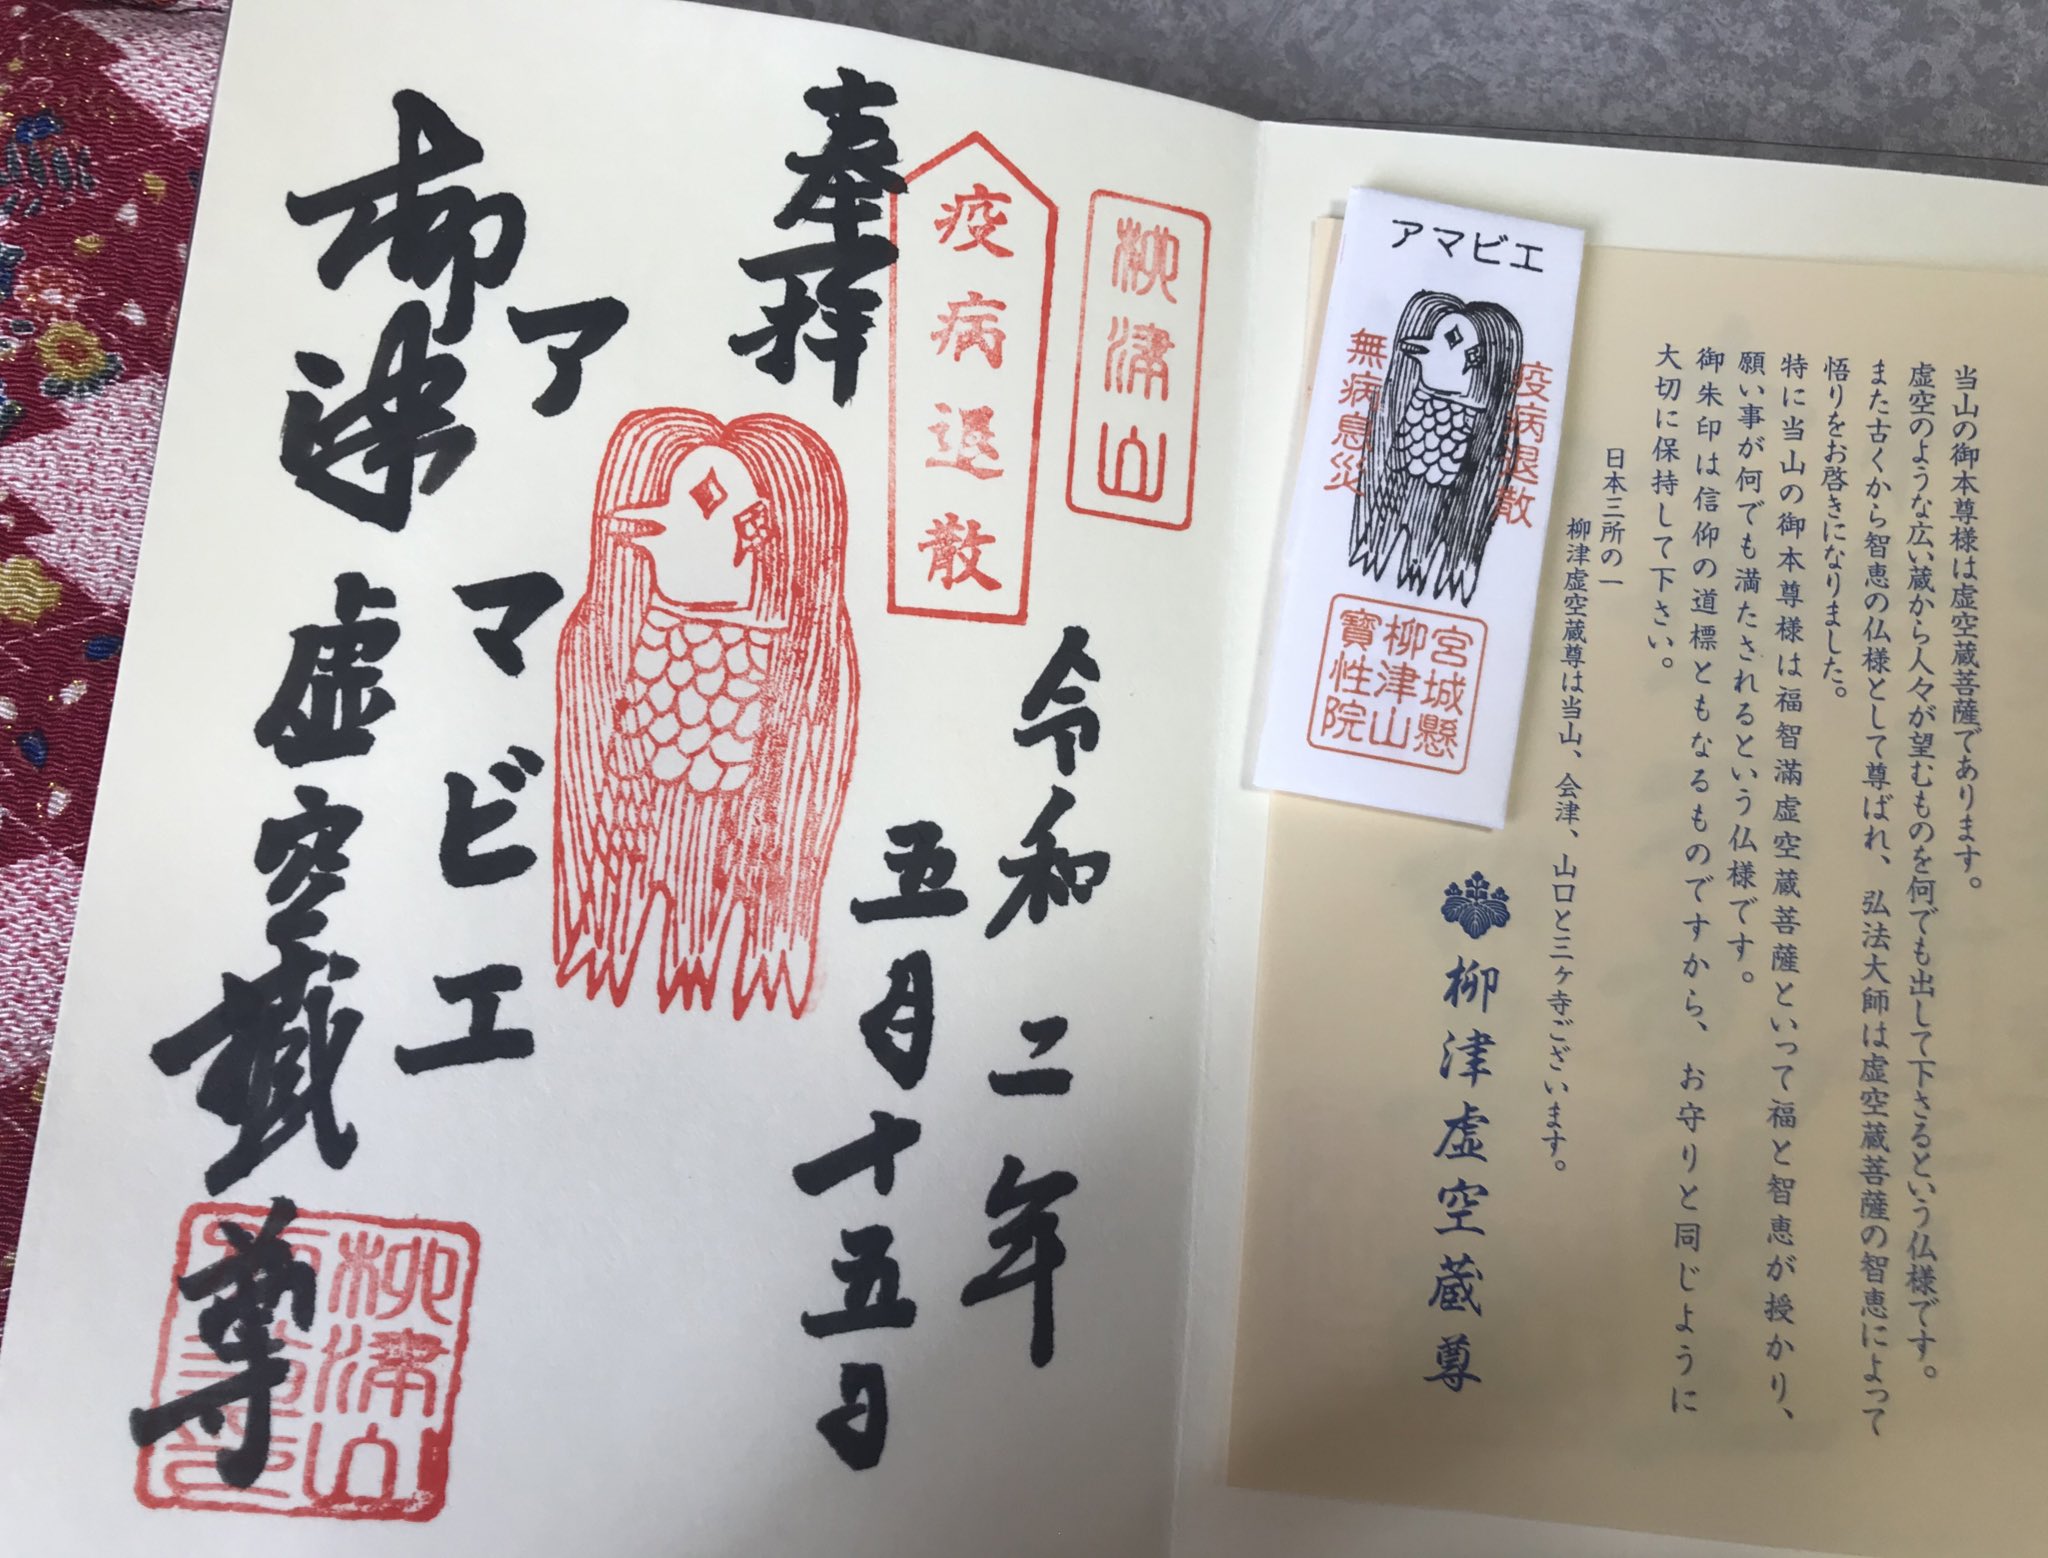 当山の御本尊様は虚空蔵菩薩であります。
虚空のような広い蔵から人々が望むものを何でも出して下さるという仏様です。
また古くから智恵の仏様として尊ばれ、弘法大師は虚空蔵菩薩の智恵によって
悟りをお啓きになりました。
特に当山の御本尊様は福智滿虚空蔵菩薩といって福と智恵が授かり、
願い事が何でも満たされるという仏様です。
御朱印は信仰の道標ともなるものですから、お守りと同じように
大切に保持して下さい。
日本三所の一
柳津虚空蔵尊は当山、会津、山口と三ヶ寺ございます。
柳津虚空蔵尊
アマビエ
疫病退散
無病息災
宮城懸
柳津山
寶性院
柳津山
疫病退散
奉拝
令和二年
五月十五日
アマビエ
柳津虚空蔵尊
柳津山